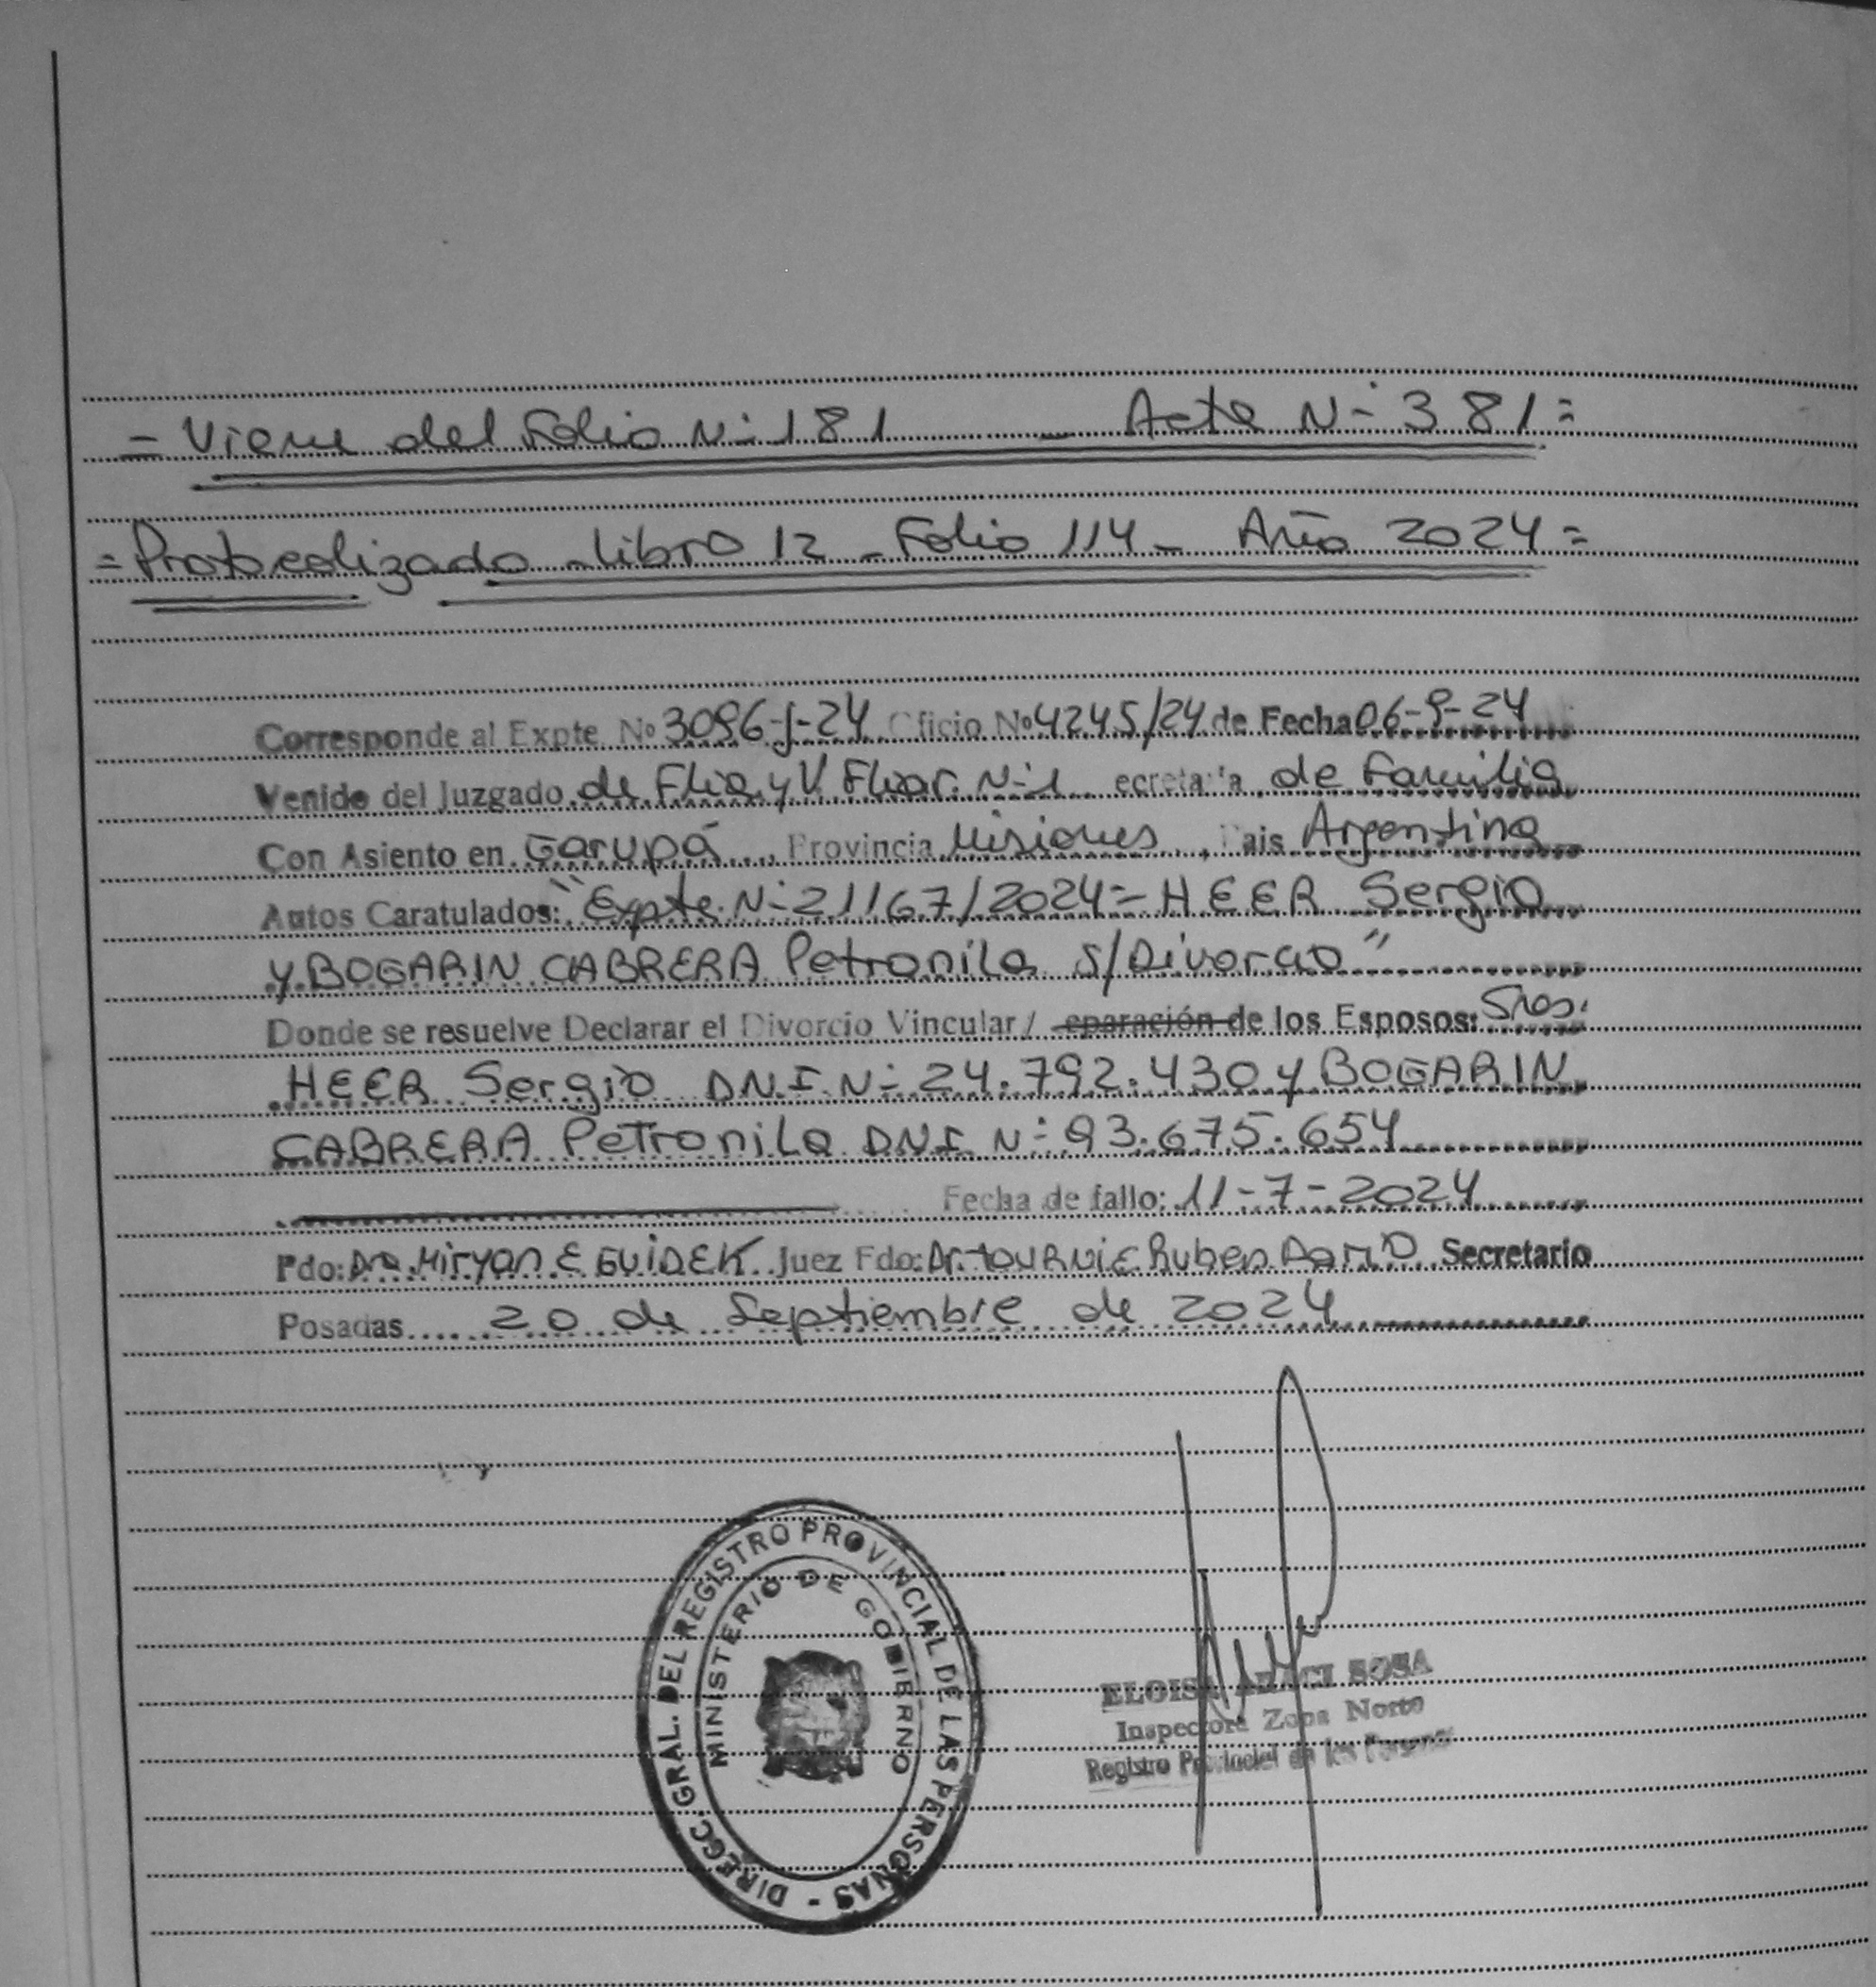 = Viene del Folio N° 181 - Acta N° 381 =
= Protocolizado - Libro 12 - Folio 114 - Año 2024 =
Corresponde al Expte Nº 3096-J-24 Oficio Nº 4245/24 de Fecha 06-9-24
Venido del Juzgado de Flia. y V. Fliar. N° 1 ecretaria de Familia
Con Asiento en Garupá, Provincia Misiones, Pais Argentina
Autos Caratulados: "Expte. N° 21167/2024 = HEER Sergio
y BOGARIN CABRERA Petronila S/Divorcio"
Donde se resuelve Declarar el Divorcio Vincular / eparación de los Esposos: Sres.
HEER Sergio DNI N° 24.792.430 y BOGARIN
CABRERA Petronila DNI N° 93.675.654
Fecha de fallo: 11-7-2024
Fdo: Dra. Miryan E GUIDEK Juez Fdo: Dr. Ruben Dario Secretario
Posadas 20 de Septiembre de 2024
DIRECC. GRAL. DEL REGISTRO PROVINCIAL DE LAS PERSONAS -
MINISTERIO DE GOBIERNO
ELOISA ARACI SOSA
Inspectora Zona Norte
Registro Provincial de las Personas